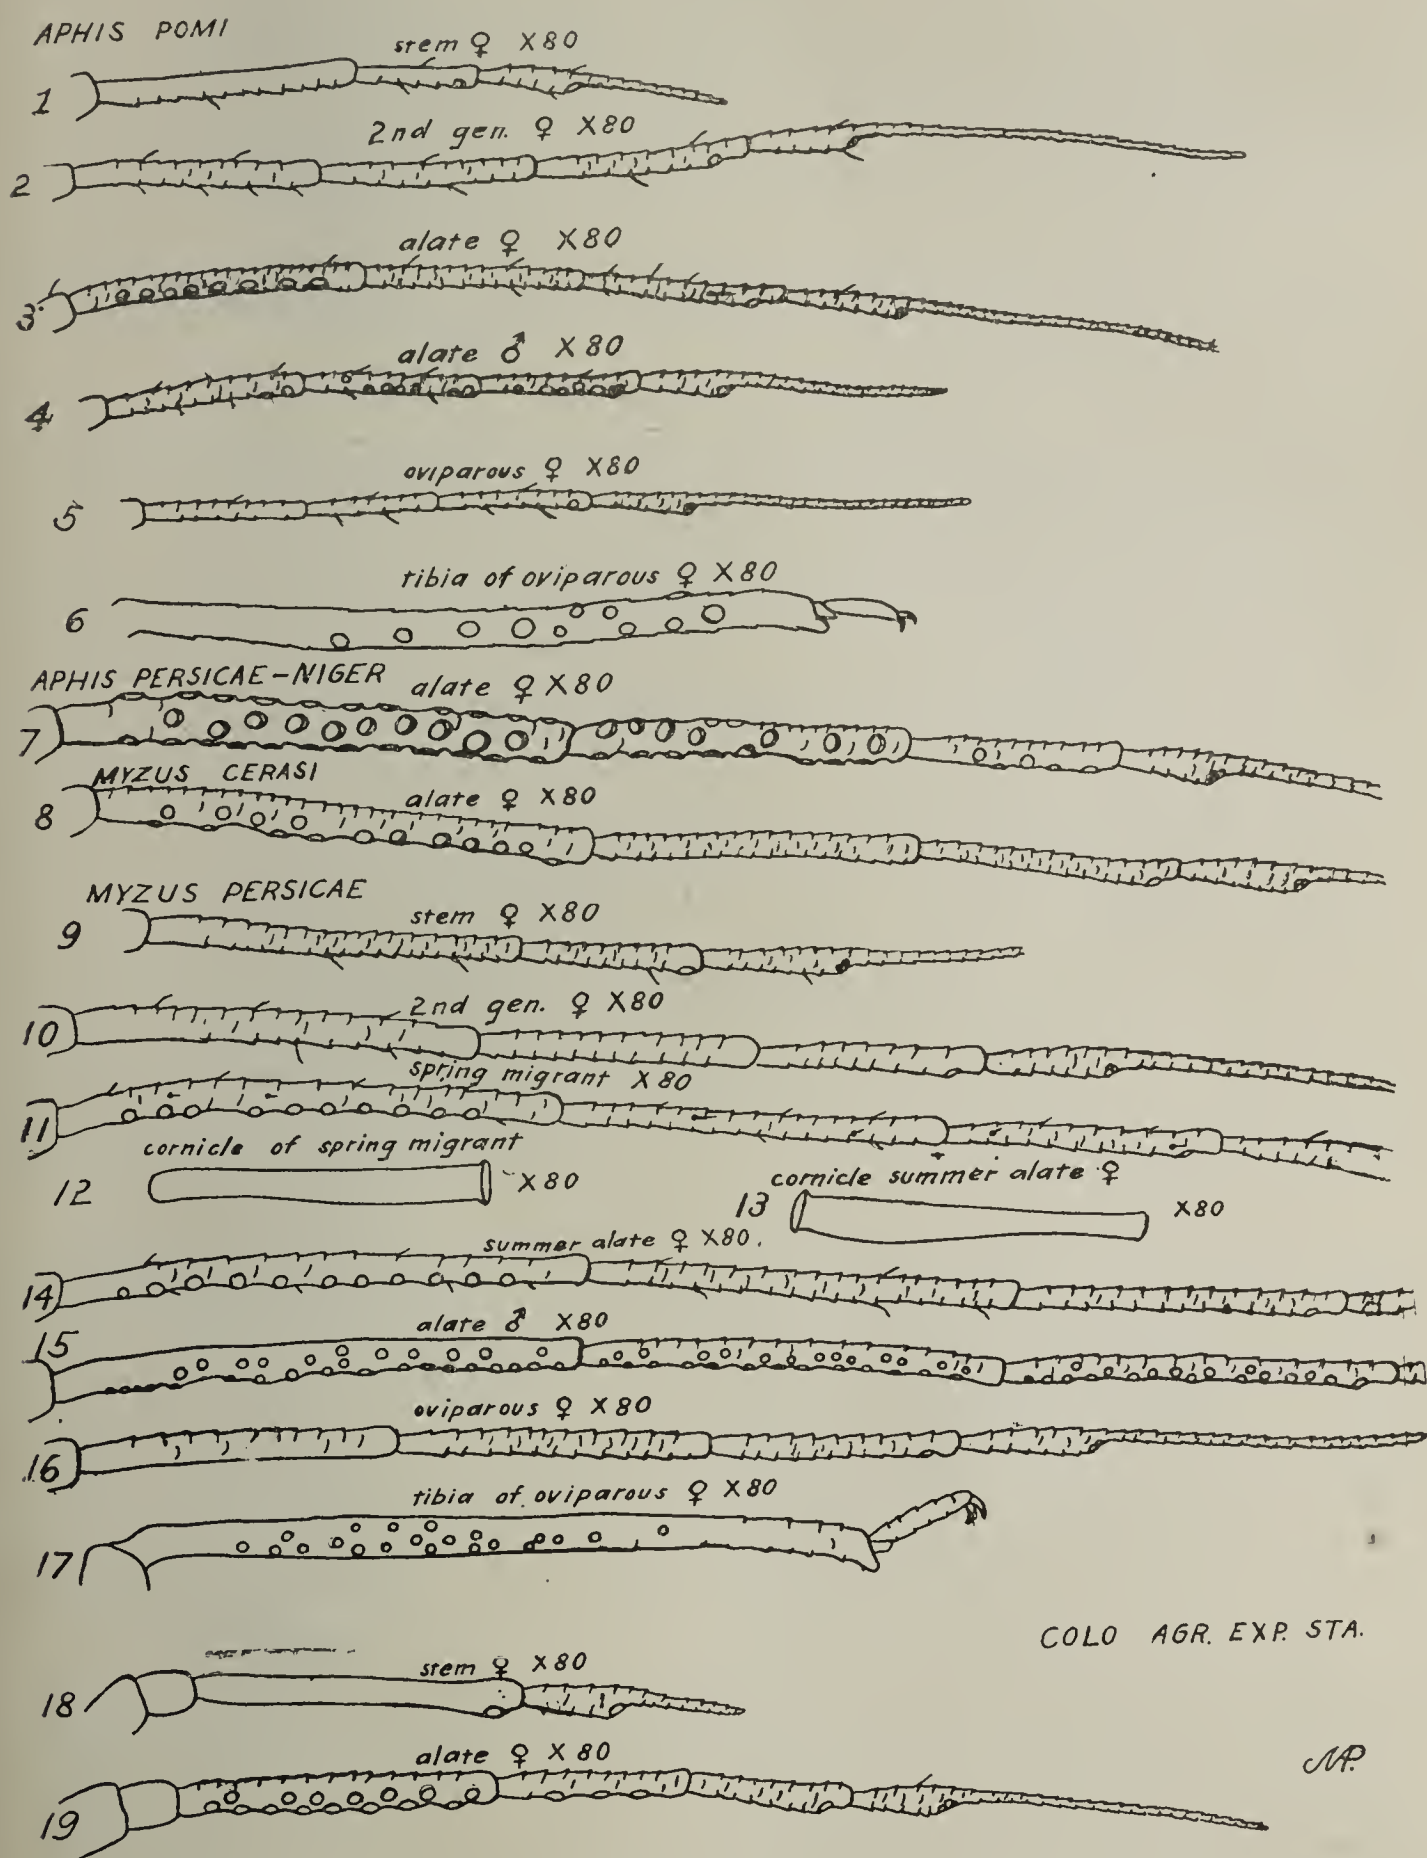 APHIS POMI
stem ♀ X80
1
2nd gen. ♀ X80
2
alate ♀ X80
3
alate ♂ X80
4
oviparous ♀ X80
5
tibia of oviparous ♀ X80
6
APHIS PERSICAE-NIGER alate ♀ X80
7
MYZUS CERASI
alate ♀ X80
8
MYZUS PERSICAE
stem ♀ X80
9
2nd gen. ♀ X80
10
spring migrant X80
11
cornicle of spring migrant
12 X80
cornicle summer alate ♀
13 X80
summer alate ♀ X80.
14
15
alate ♂ X80
oviparous ♀ X80
16
tibia of oviparous ♀ X80
17
COLO AGR. EXP. STA.
stem ♀ X80
18
alate ♀ X80
19